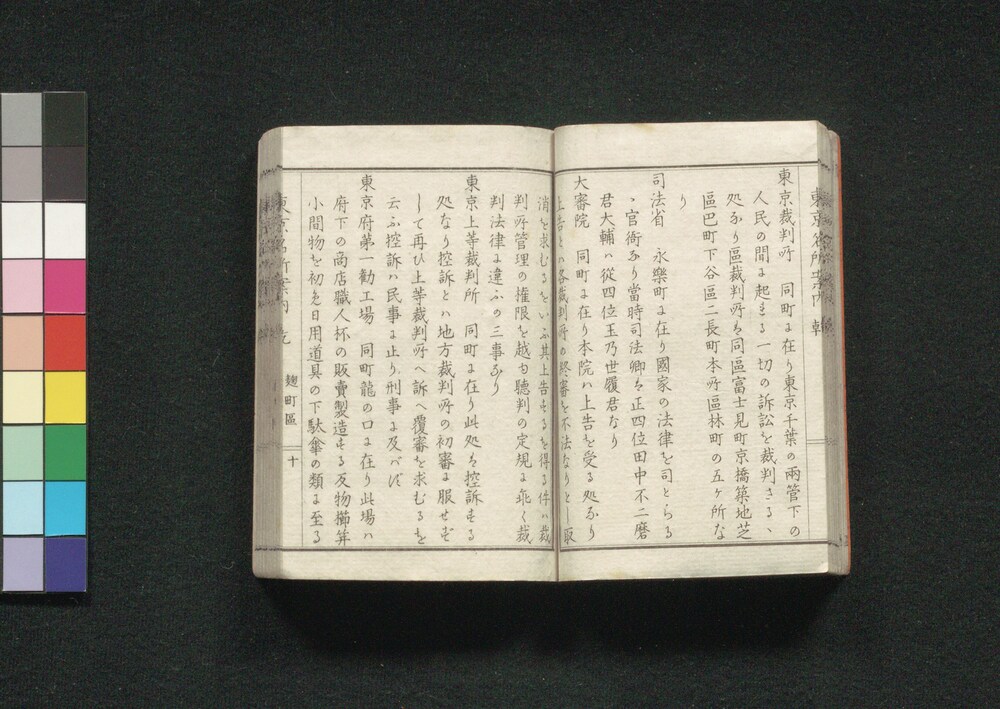 東京裁判所　同町に在り東京千葉の兩管下の
人民の間に起きる一切の訴訟を裁判さるゝ
処なり區裁判所を同區富士見町京橋築地芝
區巴町下谷區二長町本所區林町の五ケ所な
り
司法省　永樂町に在り國家の法律を司とらる
ゝ官衙なり當時司法卿を正四位田中不二磨
君大輔ハ從四位玉乃世履君なり
大審院　同町に在り本院ハ上告を受る処なり
上告とハ各裁判所の終審を不法なりとし取
消を求むるをいふ其上告するを得る件ハ裁
判所管理の權限を越も聽判の定規に乖く裁
判法律に違ふの三事なり
東京上等裁判所　同町に在り此処を控訴する
処なり控訴とハ地方裁判所の初審に服せず
して再ひ上等裁判所へ訴へ覆審を求むるを
云ふ控訴ハ民事に止り刑事に及バず
東京府第一勸工場　同町龍の口に在り此場ハ
府下の商店職人杯の販賣製造する反物櫛笄
小間物を初め日用道具の下駄傘の類に至る
麹町區
十